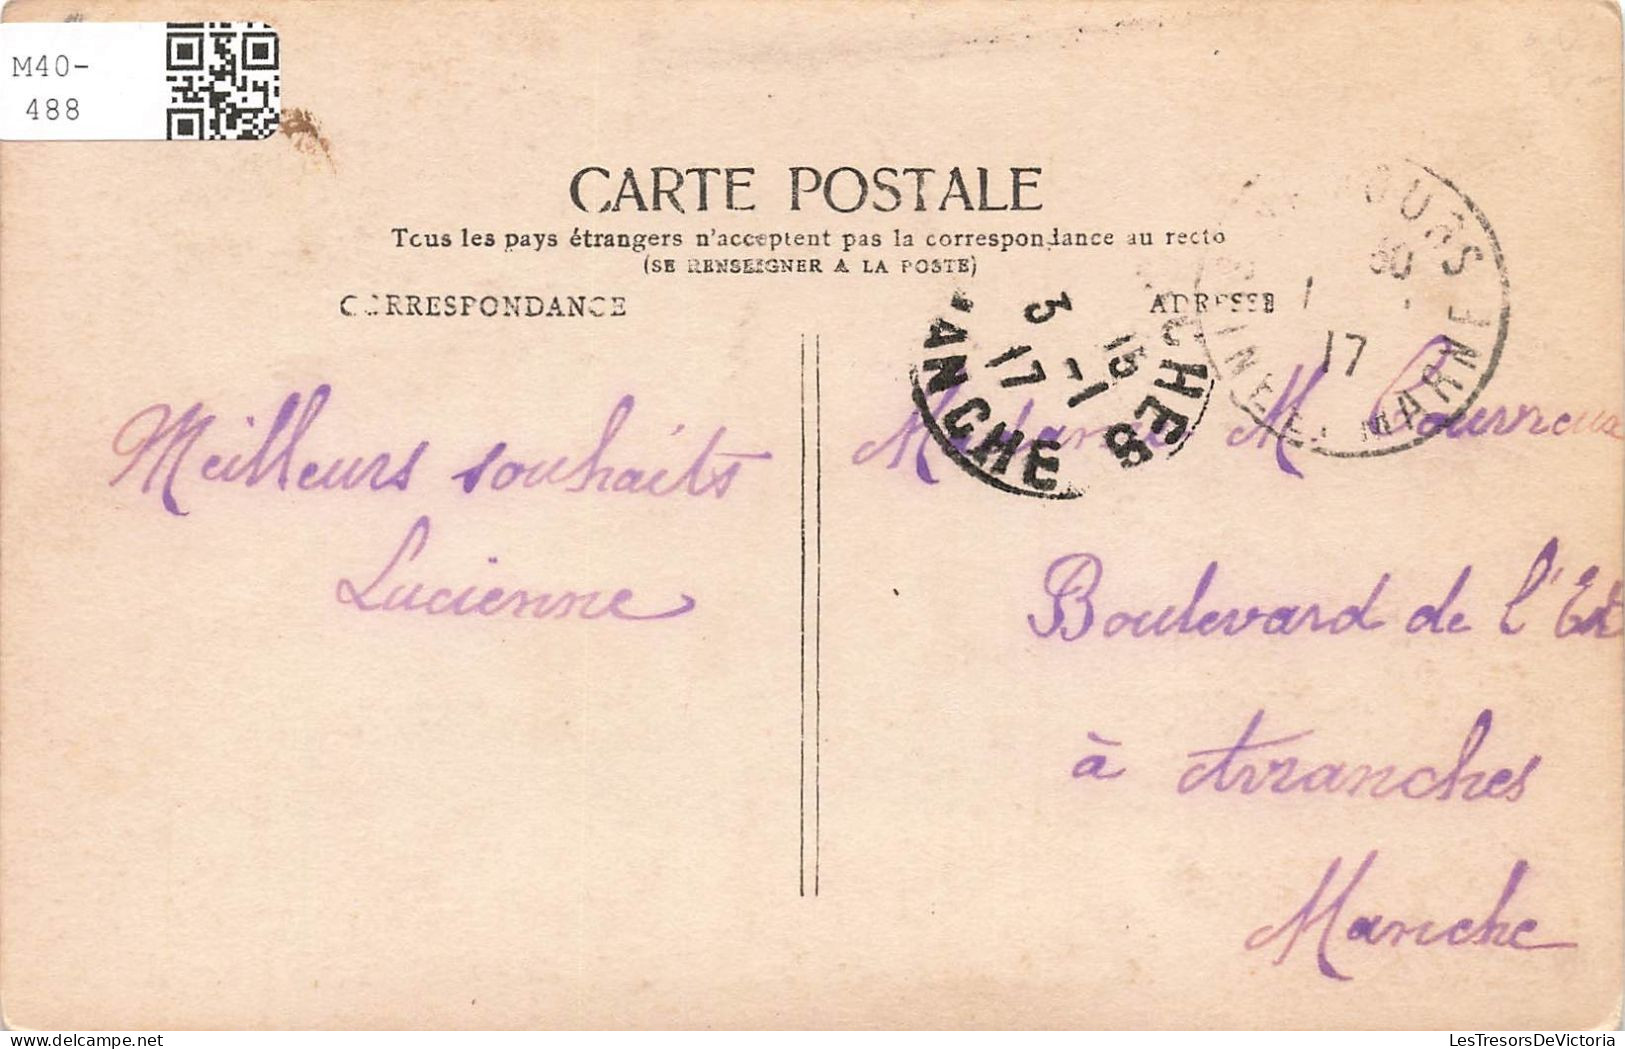 M40-
488
CARTE POSTALE
Tous les pays étrangers n'acceptent pas la correspondance au recto
(SE RENSEIGNER A LA POSTE)
CORRESPONDANCE
ADRESSE
Meilleurs souhaits
Lucienne
Madame M.
Boulevard de l'Est
à Avranches
Manche
ANCHES
3 -1
15
17
MANCHE
OURS
30
1
17
SEINE ET MARNE
LesTresorsDeVictoria